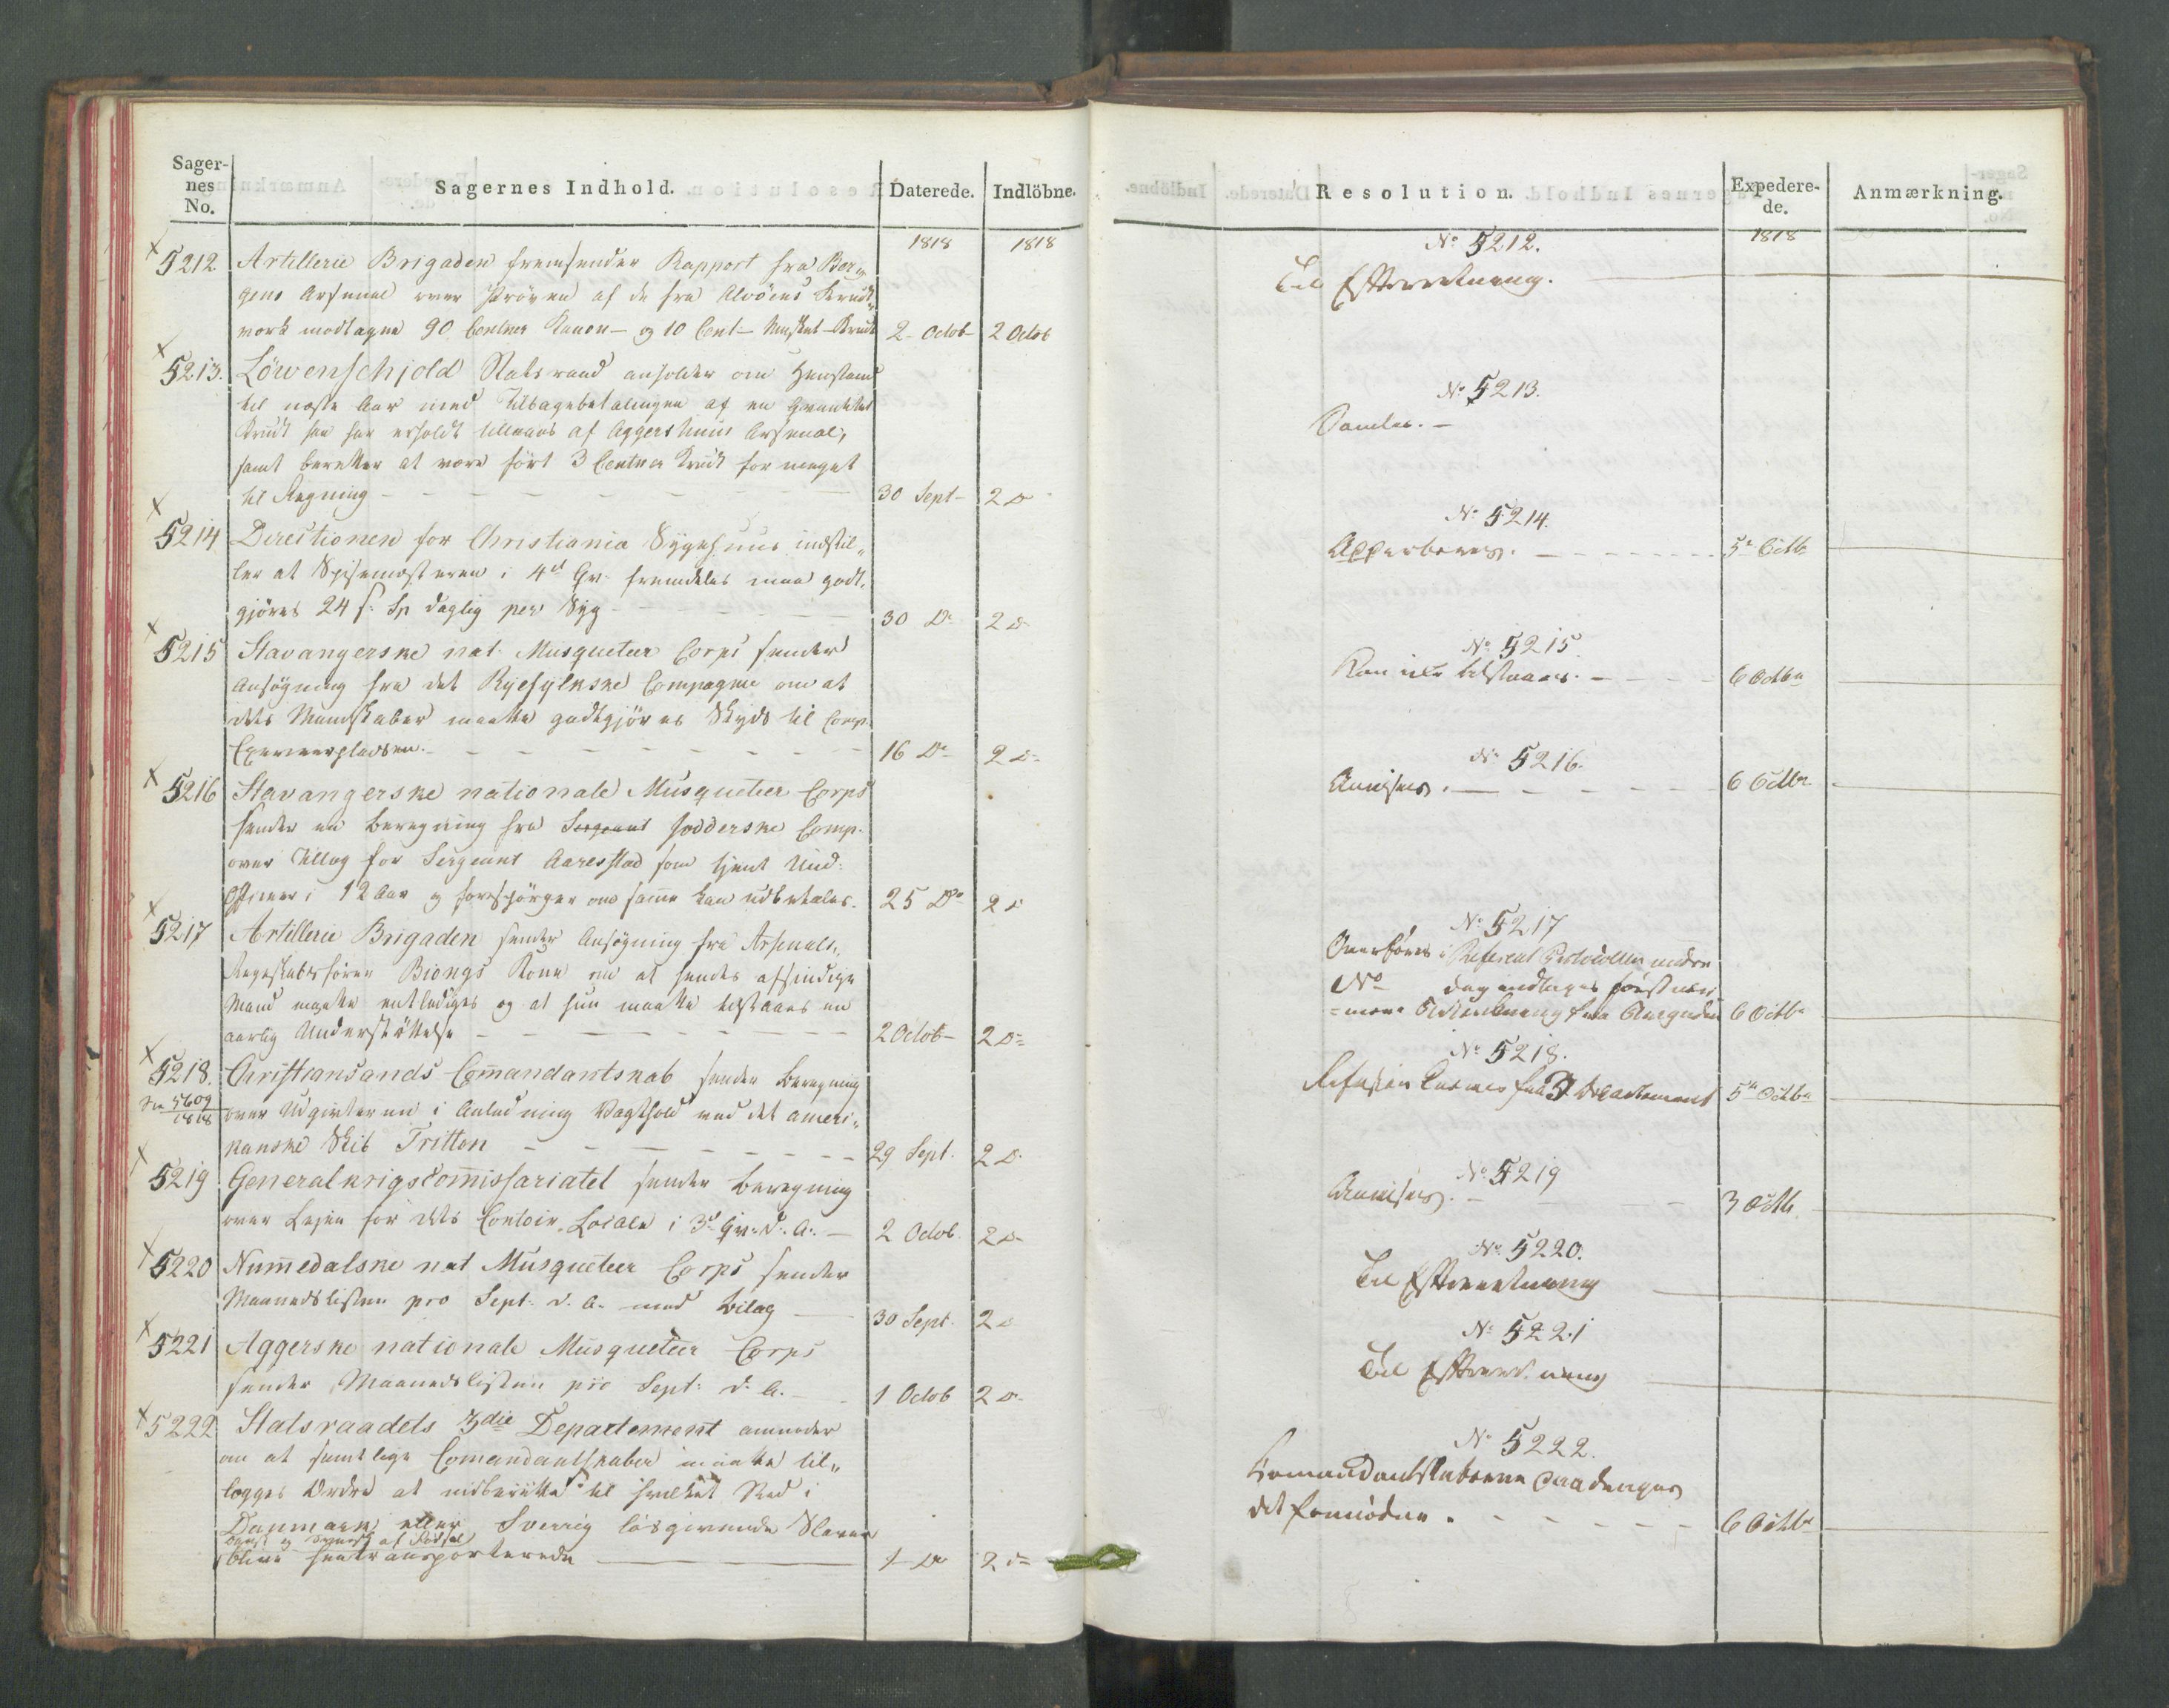 Sager-
nes
No.
Sagernes Indhold.
Daterede.
Indlöbne.
1818
1818
5212
Artillerie Brigaden fremsender Rapport fra Ber„
gens Arsenal over Pröven af de fra Alvöens Krudt„
værk modtagne 90 Centner Kanon- og 10 Cent- Musket-Krudt
2 Octob-
2 Octob
5213.
Löwenschjold Statsraad anholder om Henstand
til næste Aar med Tilbagebetalingen af en Qvantitet
Krudt han har erholdt tillaans af Aggershuus Arsenal,
samt beretter at være fört 3 Centner Krudt for meget
til Regning
30 Sept-
2 D
5214
Directionen for Christiania Sygehuus indstil„
ler at Spisemesteren i 4d Qv. fremdeles maa godt„
gjöres 24 s. Sp daglig per Syg
30 D
2 D
5215
Stavangerske nat. Musqueteer Corps sender
Ansögning fra det Ryefylkske Compagnie om at
dets Mandskaber maatte godtgjöres Skyds til Corps
Exerceerpladsen.
16 D
2 D
5216
Stavangerske nationale Musqueteer Corps
sender en Beregning fra Sergeant Jedderske Comp.
over Tillæg for Sergeant Aarestad som tjent Und.
Officeer i 12 Aar og forespörger om samme kan udbetales.
25 D
2 D
5217
Artillerie Brigaden sender Ansögning fra Arsenals„
Regnskabsförer Biongs Kone om at hendes afsindige
Mand maatte entlediges og at hun maatte tilstaaes en
aarlig Understöttelse
2 Octob-
2 D
5218.
5609
1818
Christiansands Commandantskab sender Beregning
over Udgivterne i Anledning Vagthold ved det ameri„
kanske Skib Tritton
29 Sept.
2 D
5219
Generalkrigscommissariatet sender Beregning
over Lejen for dets Contoir Locale i 3d Qv. d. A.
2 Octob.
2 D
5220
Nummedalske nat Musqueteer Corps sender
Maanedslisten pro Sept. d. A. med Bilag
30 Sept.
2 D
5221
Aggerske nationale Musqueteer Corps
sender Maanedslisten pro Sept. d. A.
1 Octob
2 D
5222
Statsraadets 3die Departement anmoder
om at samtlige Comandantskaber maatte til„
lægges Ordre at indberette til hvilket Sted i
Danmark eller Sverrig lösgivende Slaver
af Födsel
blive hentransporterede
1 D
2 D
Resolution.
Expedere-
de.
Anmærkning.
1818
No 5212.
Til Efterretning.
No 5213.
Samles.
No 5214.
Approberes.
5 Octb
No 5215
Kan ikke tilstaaes.
6 Octbr
No 5216.
Anvises.
6 Octbr
No 5217
Overföres i Referent Protocollen under
No dog indtages först nær
=mere Oplysning fra Brigaden
6 Octbr
No 5218.
Refusion kræves fra 3 Departement
5 Octbr
No 5219
Anvises.
3 Octb
No 5220.
Til Efterretning
No 5221
Til Efterretning
No 5222.
Comandantskaberne paalægges
det fornödne.
6 Octbr